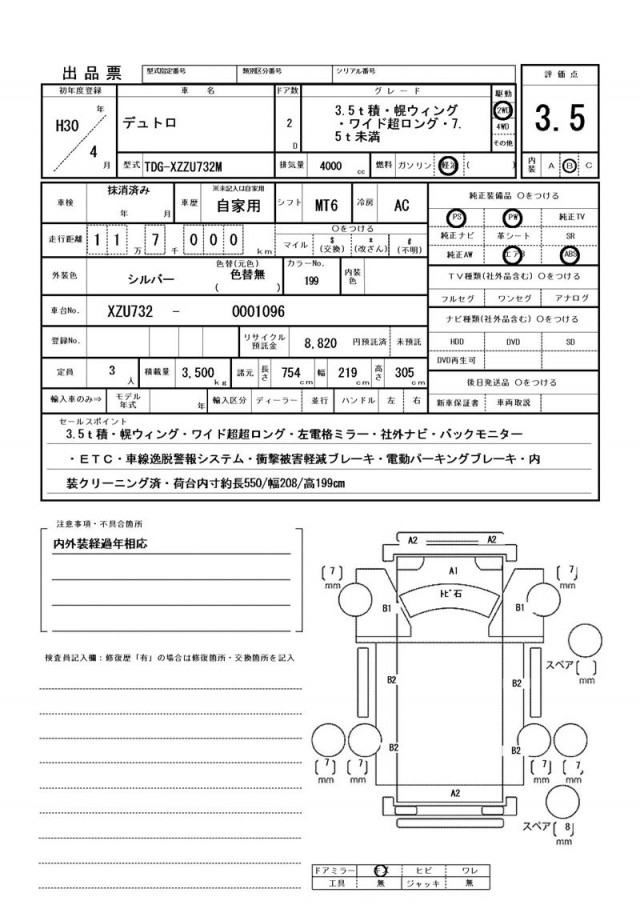 出品票 型式指定番号 類別区分番号 シリアル番号 評価点
初年度登録 車名 ドア数 グレード 駆動
H30 年 4 月 デュトロ 2 D 3.5t積・幌ウィング 2WD 3.5
・ワイド超ロング・7. 4WD
5t未満 その他
型式 TDG-XZZU732M 排気量 4000 cc 燃料 ガソリン 軽油 ( 内装 A B C
車検 抹消済み 年 月 車歴 ※未記入は自家用 自家用 シフト MT6 冷房 AC 純正装備品 〇をつける
PS PW 純正TV
走行距離 11 万 7 千 000 km 〇をつける マイル $ (交換) * (改ざん) # (不明) 純正ナビ 革シート SR
純正AW エアB ABS
外装色 シルバー 色替(元色) 色替無 ( ) カラーNo. 199 内装色 TV種類(社外品含む) 〇をつける
フルセグ ワンセグ アナログ
車台No. XZU732 - 0001096 ナビ種類(社外品含む) 〇をつける
登録No. リサイクル預託金 8,820 円預託済 未預託 HDD DVD SD
DVD再生可
定員 3 人 積載量 3,500 kg 諸元 長さ 754 cm 幅 219 cm 高さ 305 cm 後日発送品 〇をつける
輸入車のみ⇒ モデル年式 年 輸入区分 ディーラー 並行 ハンドル 左 右 新車保証書 車両取説
セールスポイント
3.5t積・幌ウィング・ワイド超超ロング・左電格ミラー・社外ナビ・バックモニター
・ETC・車線逸脱警報システム・衝撃被害軽減ブレーキ・電動パーキングブレーキ・内
装クリーニング済・荷台内寸約長550/幅208/高199cm
注意事項・不具合箇所
内外装経過年相応
検査員記入欄：修復歴「有」の場合は修復箇所・交換箇所を記入
A2 A2
(7) mm A1 (7) mm
トビ石
B1 B1
スペア( ) mm
B2 B2
B2 B2
(7) mm (7) mm (7) mm (7) mm
A2
スペア(8) mm
ドアミラー キズ ヒビ ワレ
工具 無 ジャッキ 無